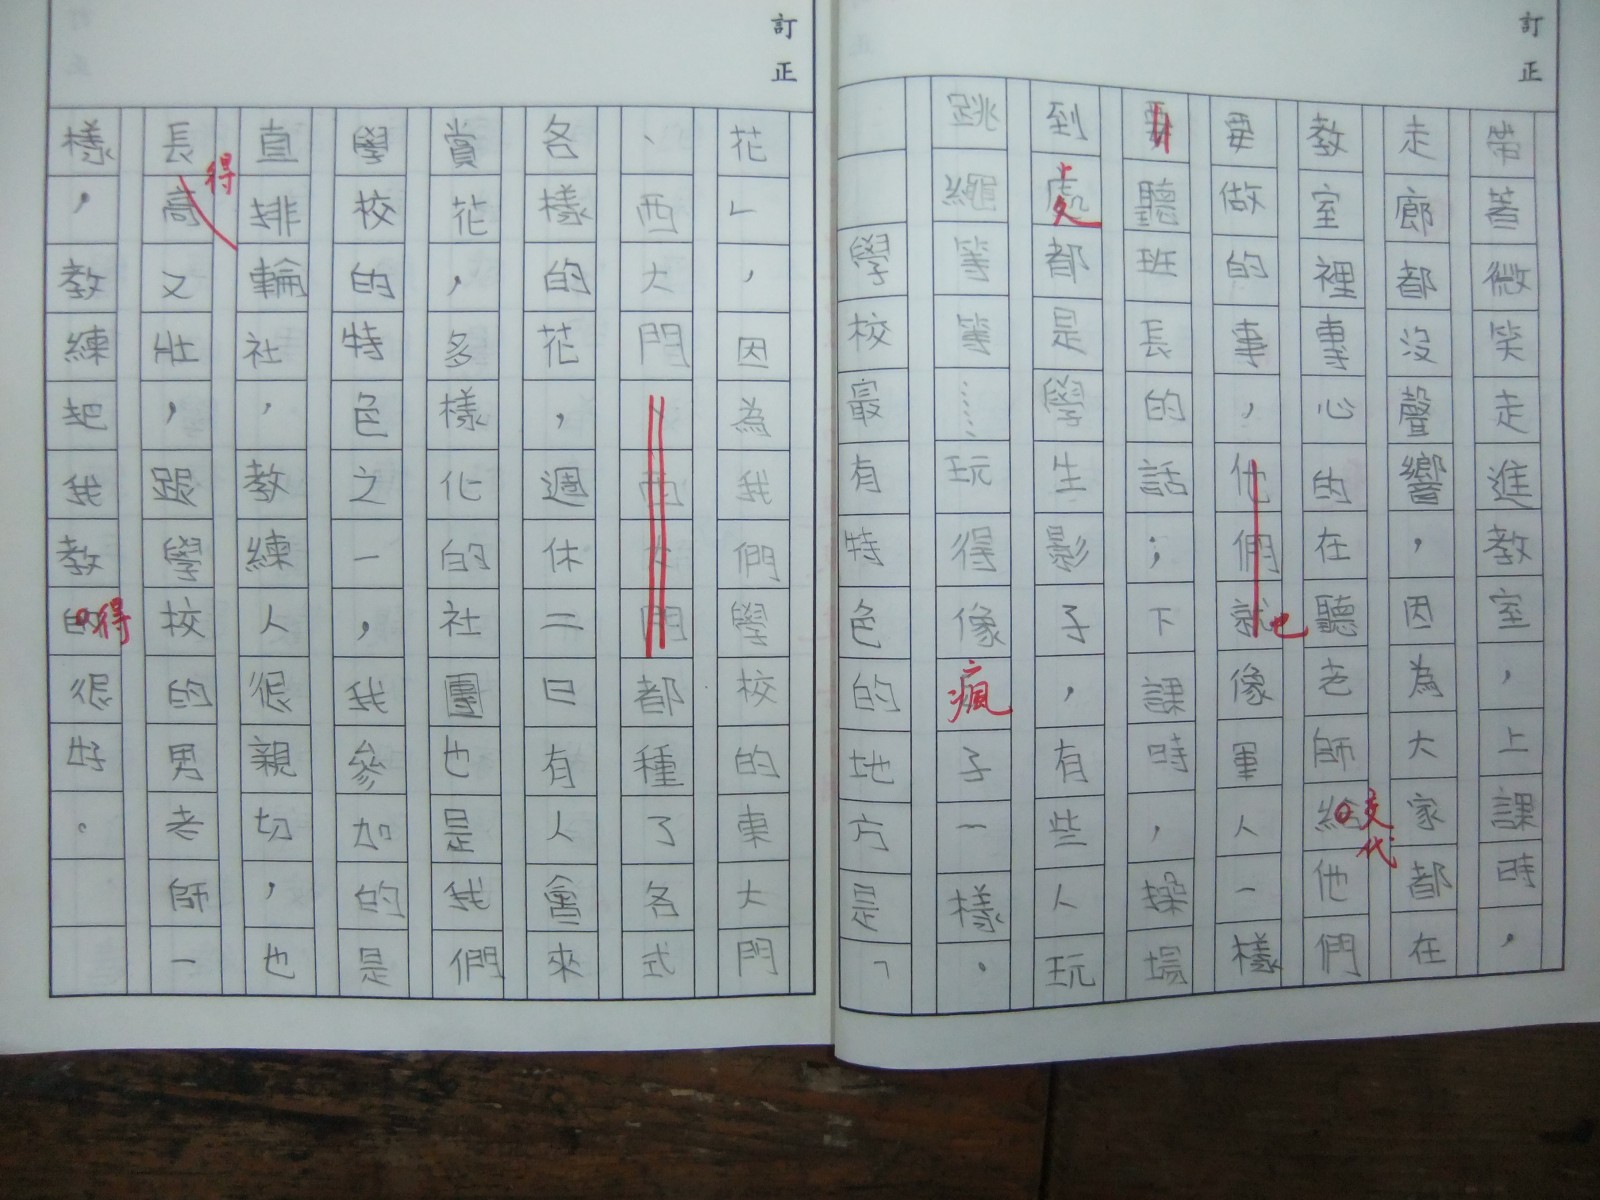 訂正
帶著微笑走進教室，上課時，
走廊都沒聲響，因為大家都在
教室裡專心的在聽老師給他們
交代
要做的事，他們就像軍人一樣
也
要聽班長的話；下課時，操場
到處都是學生影子，有些人玩
處
跳繩等等……玩得像瘋子一樣。
學校最有特色的地方是「
訂正
花」，因為我們學校的東大門
、西大門、西大門都種了各式
各樣的花，週休二日有人會來
賞花，多樣化的社團也是我們
學校的特色之一，我參加的是
直排輪社，教練人很親切，也
得
長高又壯，跟學校的男老師一
樣，教練把我教的很好。
得